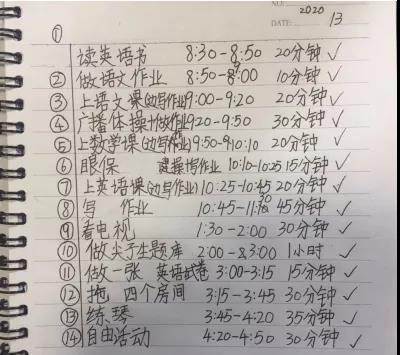 NO:
DATE: 2020 13
① 读英语书 8:30-8:50 20分钟 ✓
② 做语文作业 8:50-9:00 10分钟 ✓
③ 上语文课(边写作业)9:00-9:20 20分钟 ✓
④ 广播体操+做作业9:20-9:50 30分钟 ✓
⑤ 上数学课(边写作业)9:50-10:10 20分钟 ✓
⑥ 眼保 健操+写作业 10:10-10:25 15分钟 ✓
⑦ 上英语课(边写作业)10:25-10:45 20分钟 ✓
⑧ 写 作业 10:45-11:30 45分钟 ✓
⑨ 看电视 1:30-2:00 30分钟 ✓
⑩ 做尖子生题库 2:00-3:00 1小时 ✓
⑪ 做一张 英语试卷 3:00-3:15 15分钟 ✓
⑫ 拖 四个房间 3:15-3:45 30分钟 ✓
⑬ 练琴 3:45-4:20 35分钟 ✓
⑭ 自由活动 4:20-4:50 30分钟 ✓